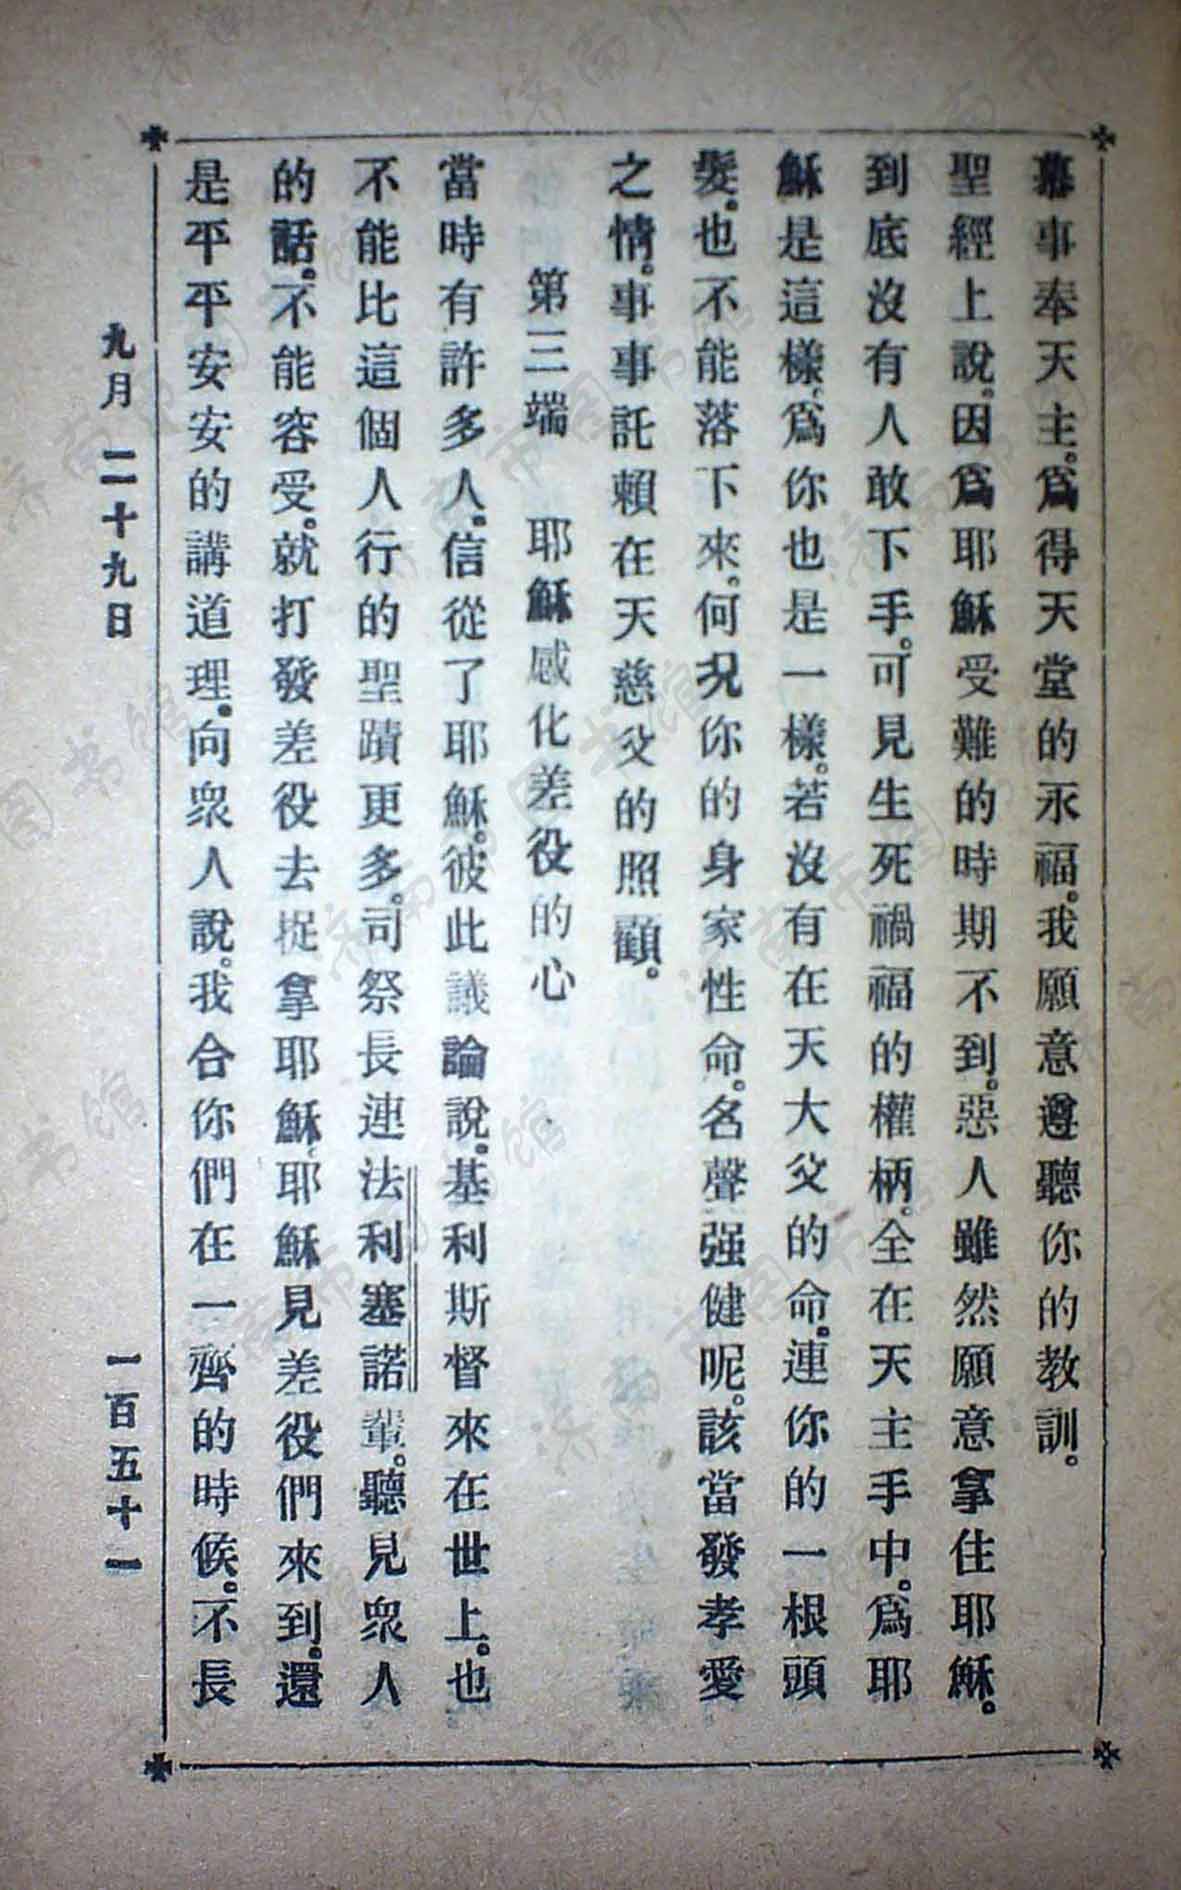 慕事奉天主。爲得天堂的永福。我願意遵聽你的教訓。
聖經上說。因爲耶穌受難的時期不到。惡人雖然願意拿住耶穌。
到底沒有人敢下手。可見生死禍福的權柄。全在天主手中。爲耶
穌是這樣、爲你也是一樣。若沒有在天大父的命。連你的一根頭
髮。也不能落下來。何况你的身家性命。名聲强健呢。該當發孝愛
之情。事事託賴在天慈父的照顧。
第三端 耶穌感化差役的心
當時有許多人。信從了耶穌。彼此議論說。基利斯督來在世上。也
不能比這個人行的聖蹟更多。司祭長連法利塞諾輩。聽見衆人
的話。不能容受。就打發差役去捉拿耶穌、耶穌見差役們來到。還
是平平安安的講道理。向衆人說。我合你們在一齊的時候。不長
九月 二十九日 一百五十一
济南市图书馆